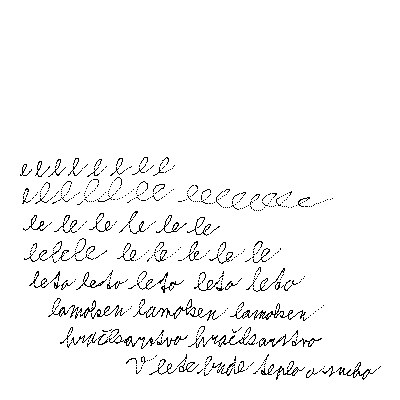 le le le le le le
lelele le le le le le
leto leto leto leto leto
lamoken lamoken lamoken
hračkarstvo hračkarstvo
V lete bude teplo a sucho